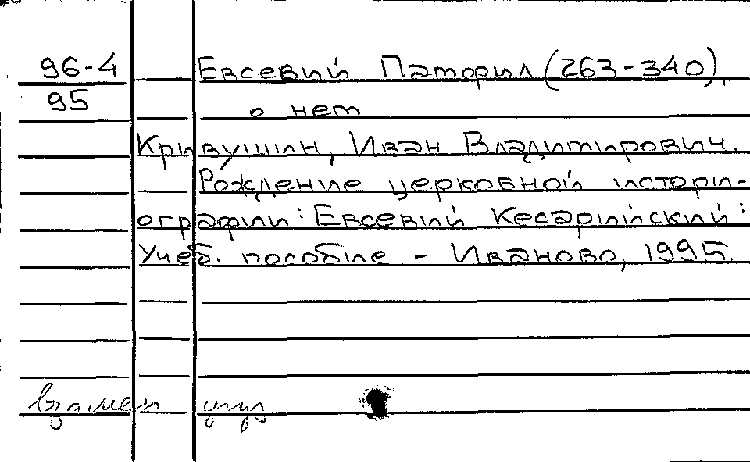 96-4 Евсевий Памфил (263-340).
95 о нем
Кривушин, Иван Владимирович.
Рождение церковной истори-
ографии: Евсевий Кесарийский:
Учеб. пособие - Иваново, 1995.
взамен